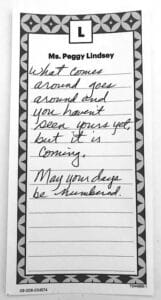 L
Ms. Peggy Lindsey
What comes
around goes
around and
you havent
seen yours yet,
but it is
coming.
May your days
be numbered.